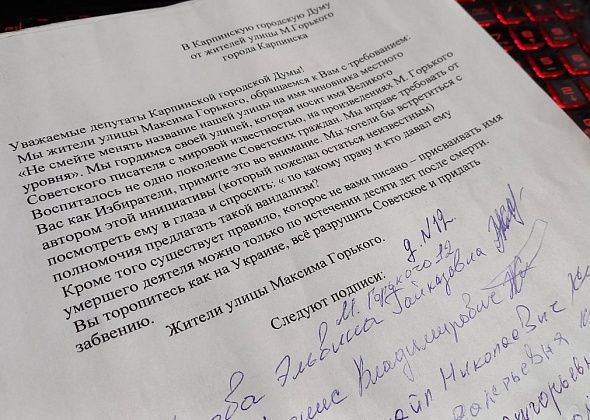 В Карпинскую городскую Думу
от жителей улицы М.Горького
города Карпинска
Уважаемые депутаты Карпинской городской Думы!
Мы жители улицы Максима Горького, обращаемся к Вам с требованием:
«Не смейте менять название нашей улицы на имя чиновника местного
уровня». Мы гордимся своей улицей, которая носит имя Великого
Советского писателя с мировой известностью, на произведениях М. Горького
Воспиталось не одно поколение Советских граждан. Мы вправе требовать от
Вас как Избиратели, примите это во внимание. Мы хотели бы встретиться с
автором этой инициативы (который пожелал остаться неизвестным)
посмотреть ему в глаза и спросить: « по какому праву и кто давал ему
полномочия предлагать такой вандализм?
Кроме того существует правило, которое не вами писано – присваивать имя
умершего деятеля можно только по истечении десяти лет после смерти.
Вы торопитесь как на Украине, всё разрушить Советское и придать
забвению.
Жители улицы Максима Горького.
Следуют подписи:
д. N12
М. Горького 32
Эльвина
Владимирович
Николаевич